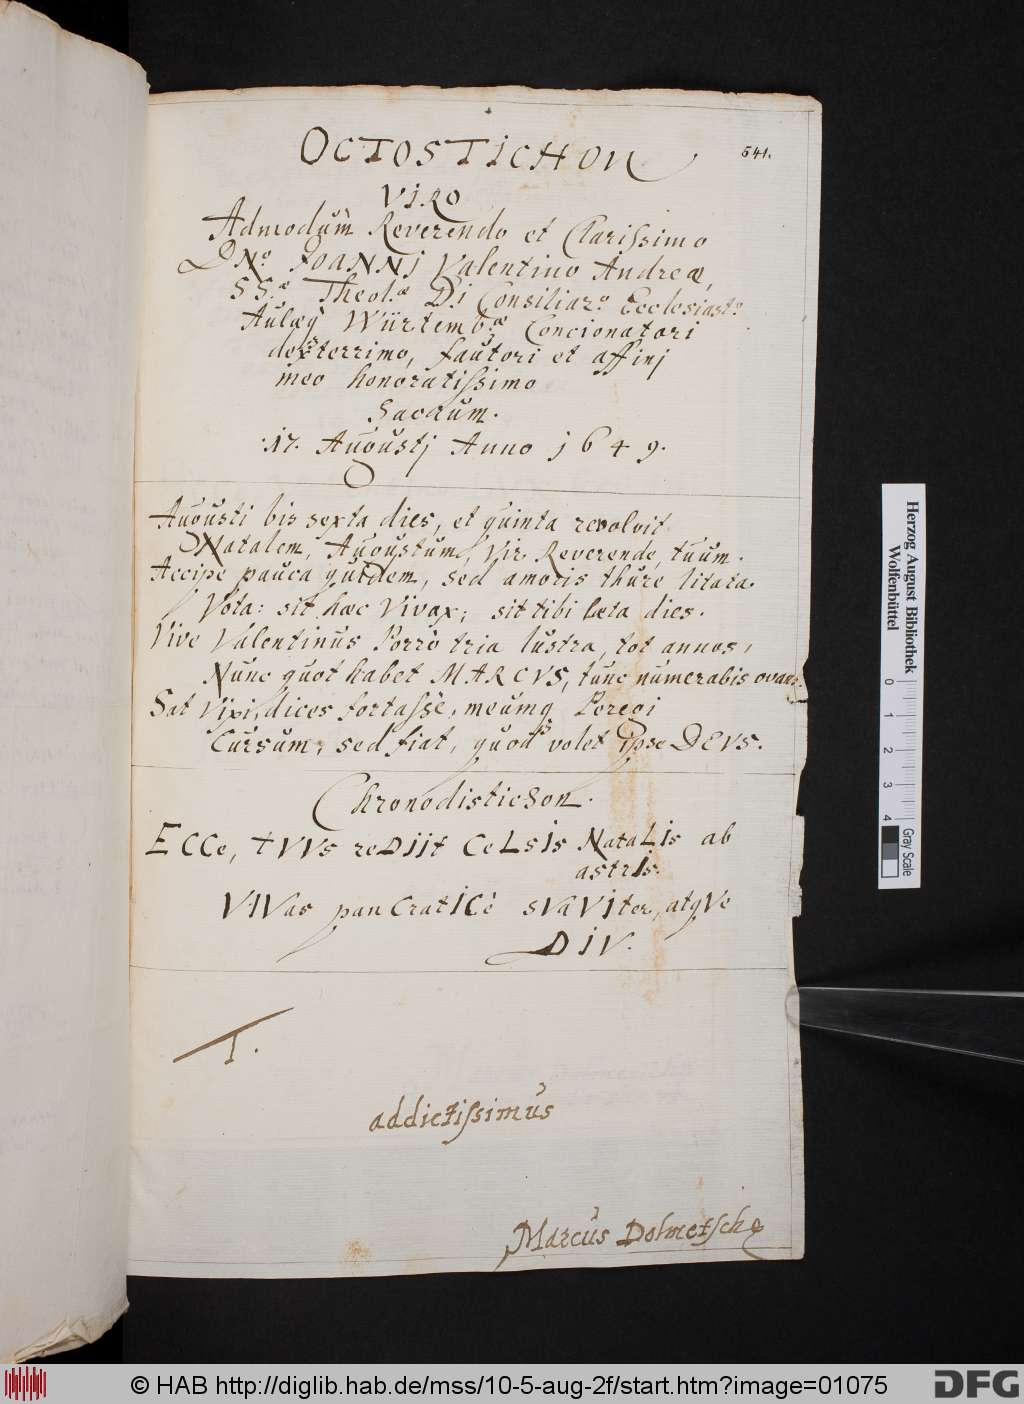 OCTOSTICHON
541.
VIRO
Admodùm Reverendo et Clarissimo
DNo. JOANNJ Valentino Andreæ,
SS.æ Theol.æ D.i Consiliar.o Ecclesiast.o
Aulæq́ Würtemb.æ Concionatori
dexterrimo, fautori et affinj
meo honoratissimo
Sacrum.
.17. Augustj Anno j649.
Augusti bis sexta dies, et quinta revolvit
Natalem, Augustum, Vir Reverende, tuum.
Accipe pauca quidem, sed amoris thure litata
Vota: sit hæc Vivax, sit tibi læta dies.
Vive Valentinus Porrò tria lustra, tot annos,
Nunc quot habet MARCVS, tunc numerabis ovans.
Sat Vixi, dices fortassè, meumq Peregi
Cursum, sed fiat, quod volet ipse DEVS.
Chronodistichon.
ECCe, tVVs reDIIt CeLsIs NataLIs ab
astrIs.
VIVas panCratICè sVaVIter, atqVe
DIV.
T.
addictissimus
Marcus Dolmetsch
Herzog August Bibliothek
Wolfenbüttel
0 1 2 3 4
Gray Scale
© HAB http://diglib.hab.de/mss/10-5-aug-2f/start.htm?image=01075
DFG